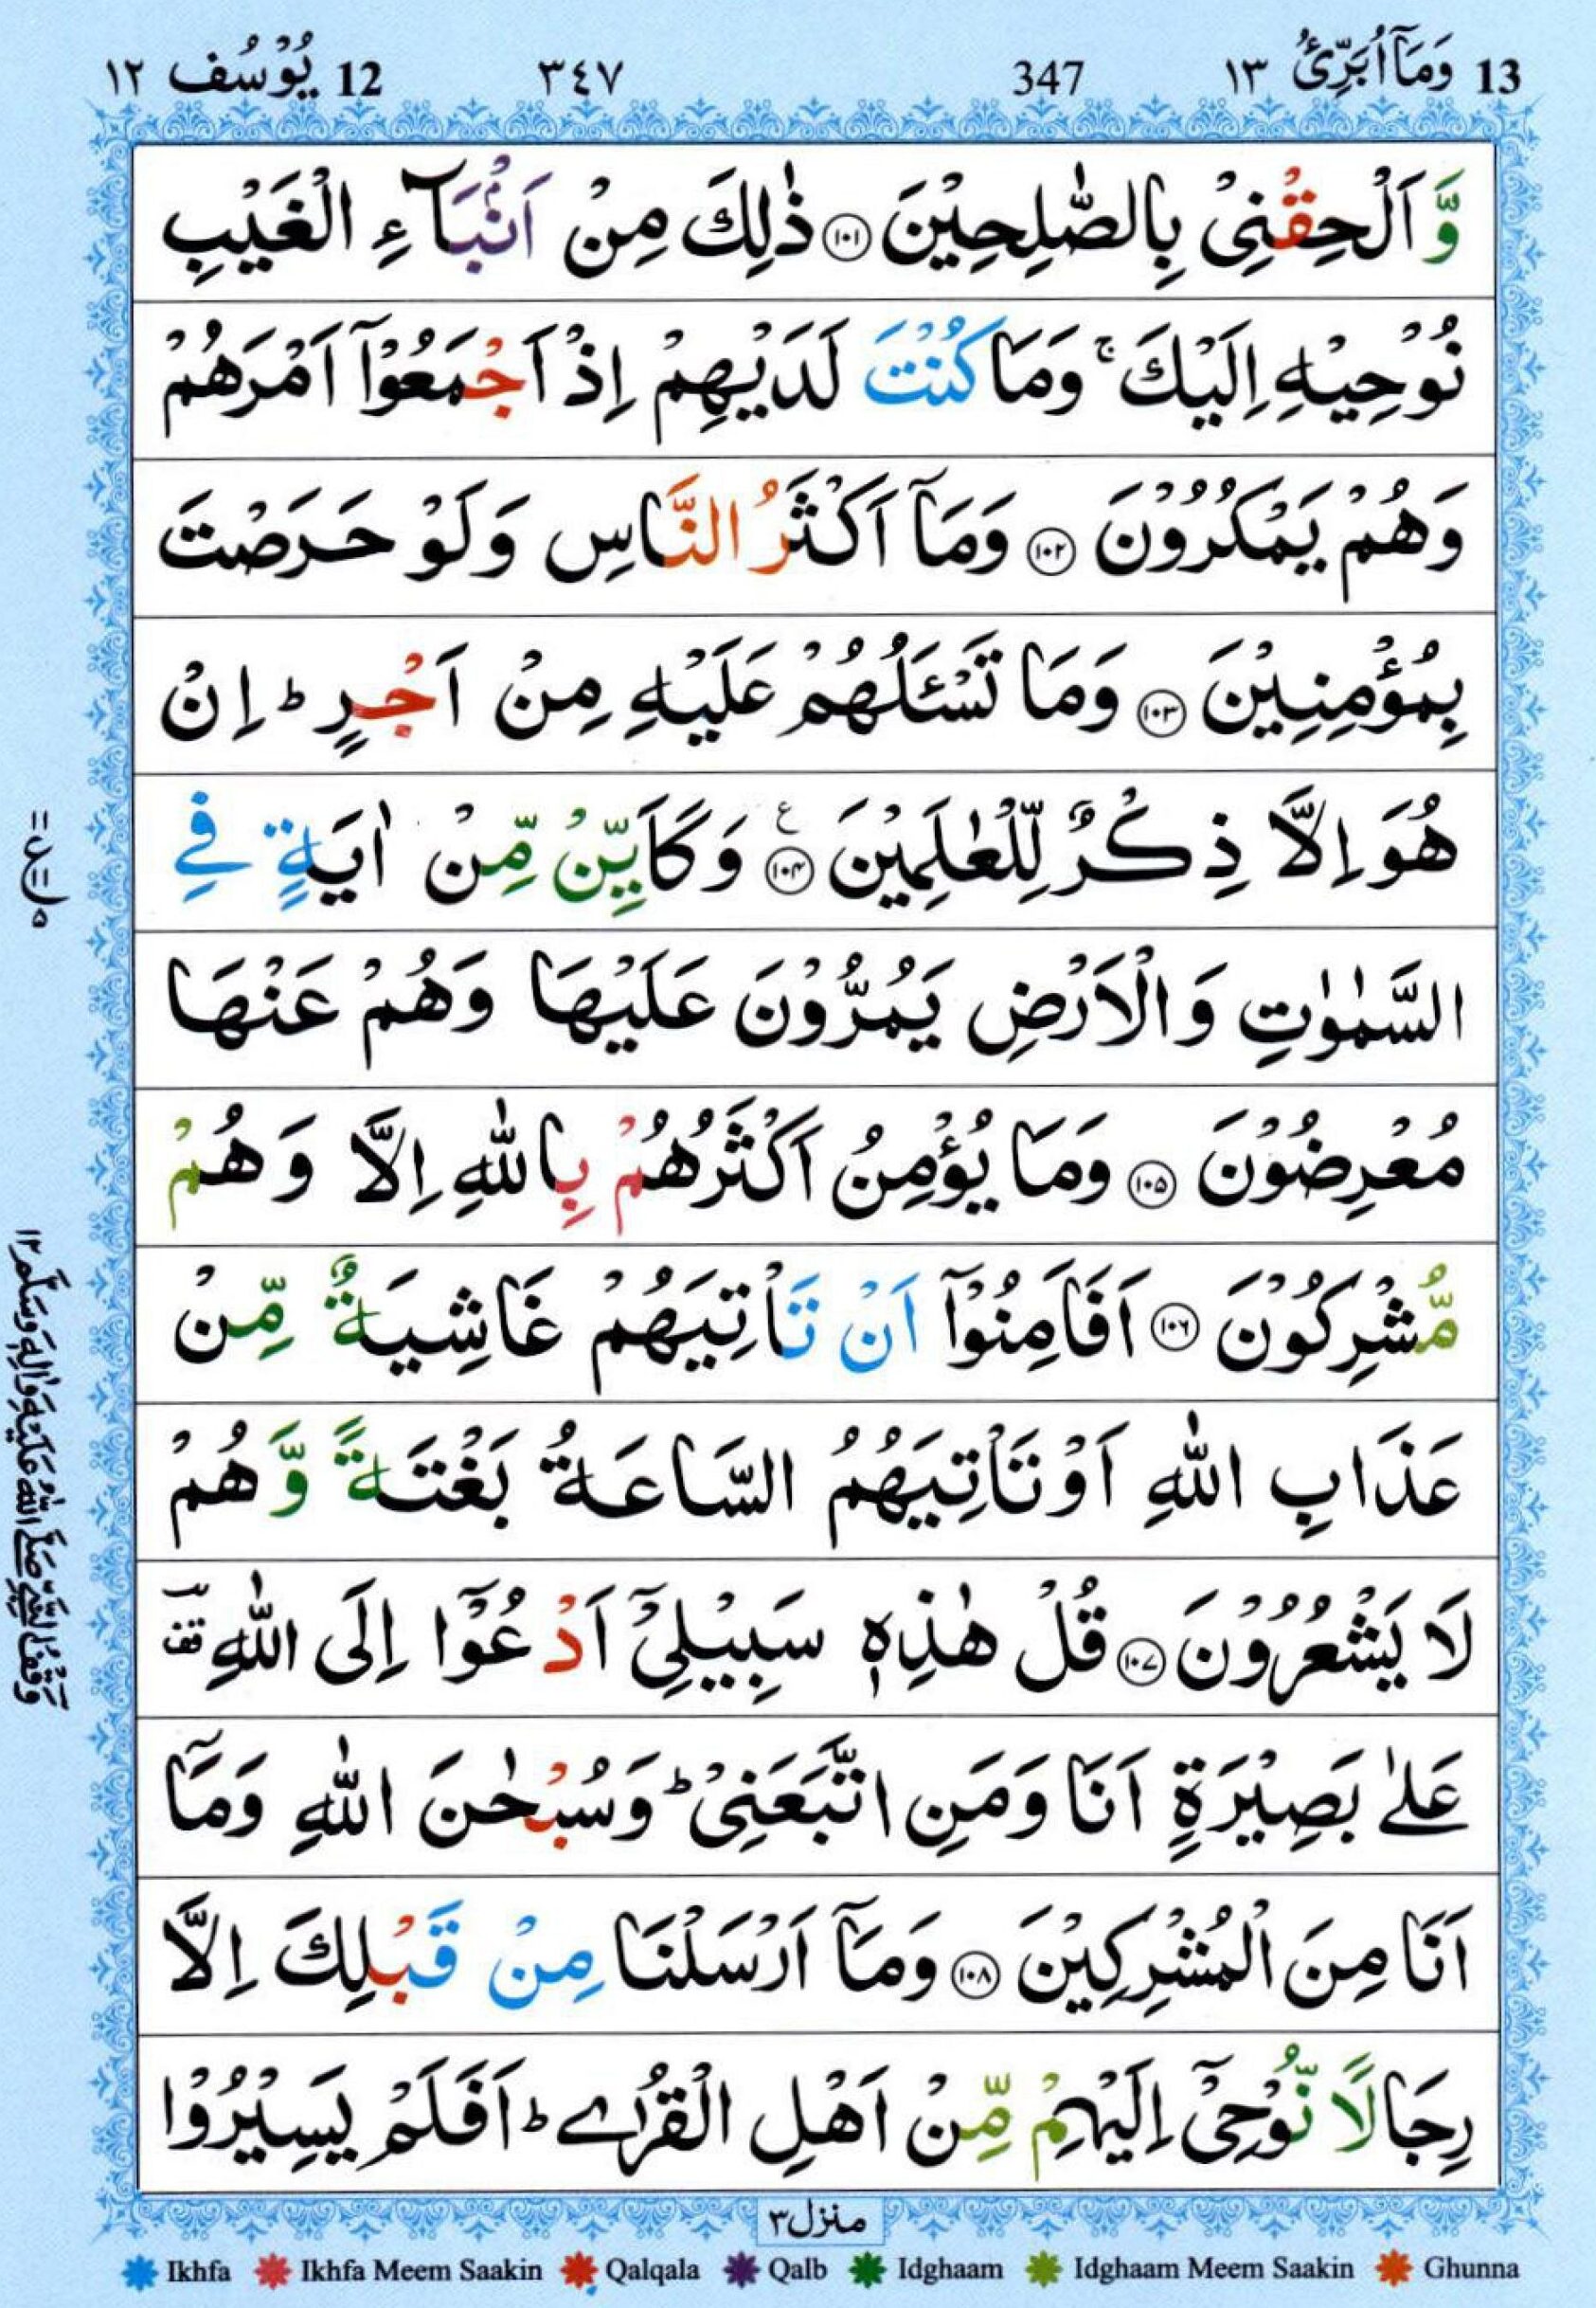 13 وَمَآ اُبَرِّئُ ١٣ 347 ٣٤٧ 12 يُوْسُف ١٢
وَّ اَلْحِقْنِىْ بِالصّٰلِحِيْنَ ﴿١٠١﴾ ذٰلِكَ مِنْ اَنْۢبَآءِ الْغَيْبِ
نُوْحِيْهِ اِلَيْكَ ۚ وَمَا كُنْتَ لَدَيْهِمْ اِذْ اَجْمَعُوْٓا اَمْرَهُمْ
وَهُمْ يَمْكُرُوْنَ ﴿١٠٢﴾ وَمَآ اَكْثَرُ النَّاسِ وَلَوْ حَرَصْتَ
بِمُؤْمِنِيْنَ ﴿١٠٣﴾ وَمَا تَسْـَٔلُهُمْ عَلَيْهِ مِنْ اَجْرٍ ؕ اِنْ
هُوَ اِلَّا ذِكْرٌ لِّلْعٰلَمِيْنَ ﴿١٠٤﴾ ع وَكَاَيِّنْ مِّنْ اٰيَةٍ فِى
السَّمٰوٰتِ وَالْاَرْضِ يَمُرُّوْنَ عَلَيْهَا وَهُمْ عَنْهَا
مُعْرِضُوْنَ ﴿١٠٥﴾ وَمَا يُؤْمِنُ اَكْثَرُهُمْ بِاللّٰهِ اِلَّا وَهُمْ
مُّشْرِكُوْنَ ﴿١٠٦﴾ اَفَاَمِنُوْٓا اَنْ تَاْتِيَهُمْ غَاشِيَةٌ مِّنْ
عَذَابِ اللّٰهِ اَوْ تَاْتِيَهُمُ السَّاعَةُ بَغْتَةً وَّهُمْ
لَا يَشْعُرُوْنَ ﴿١٠٧﴾ قُلْ هٰذِهٖ سَبِيْلِىْٓ اَدْعُوْٓا اِلَى اللّٰهِ ؔقف
عَلٰى بَصِيْرَةٍ اَنَا وَمَنِ اتَّبَعَنِىْ ؕ وَسُبْحٰنَ اللّٰهِ وَمَآ
اَنَا مِنَ الْمُشْرِكِيْنَ ﴿١٠٨﴾ وَمَآ اَرْسَلْنَا مِنْ قَبْلِكَ اِلَّا
رِجَالًا نُّوْحِىْٓ اِلَيْهِمْ مِّنْ اَهْلِ الْقُرٰى ؕ اَفَلَمْ يَسِيْرُوْا
وَقْفُ النَّبِيِّ صَلَّى اللّٰهُ عَلَيْهِ وَاٰلِهٖ وَسَلَّم ١٢
منزل ٣
Ikhfa Ikhfa Meem Saakin Qalqala Qalb Idghaam Idghaam Meem Saakin Ghunna